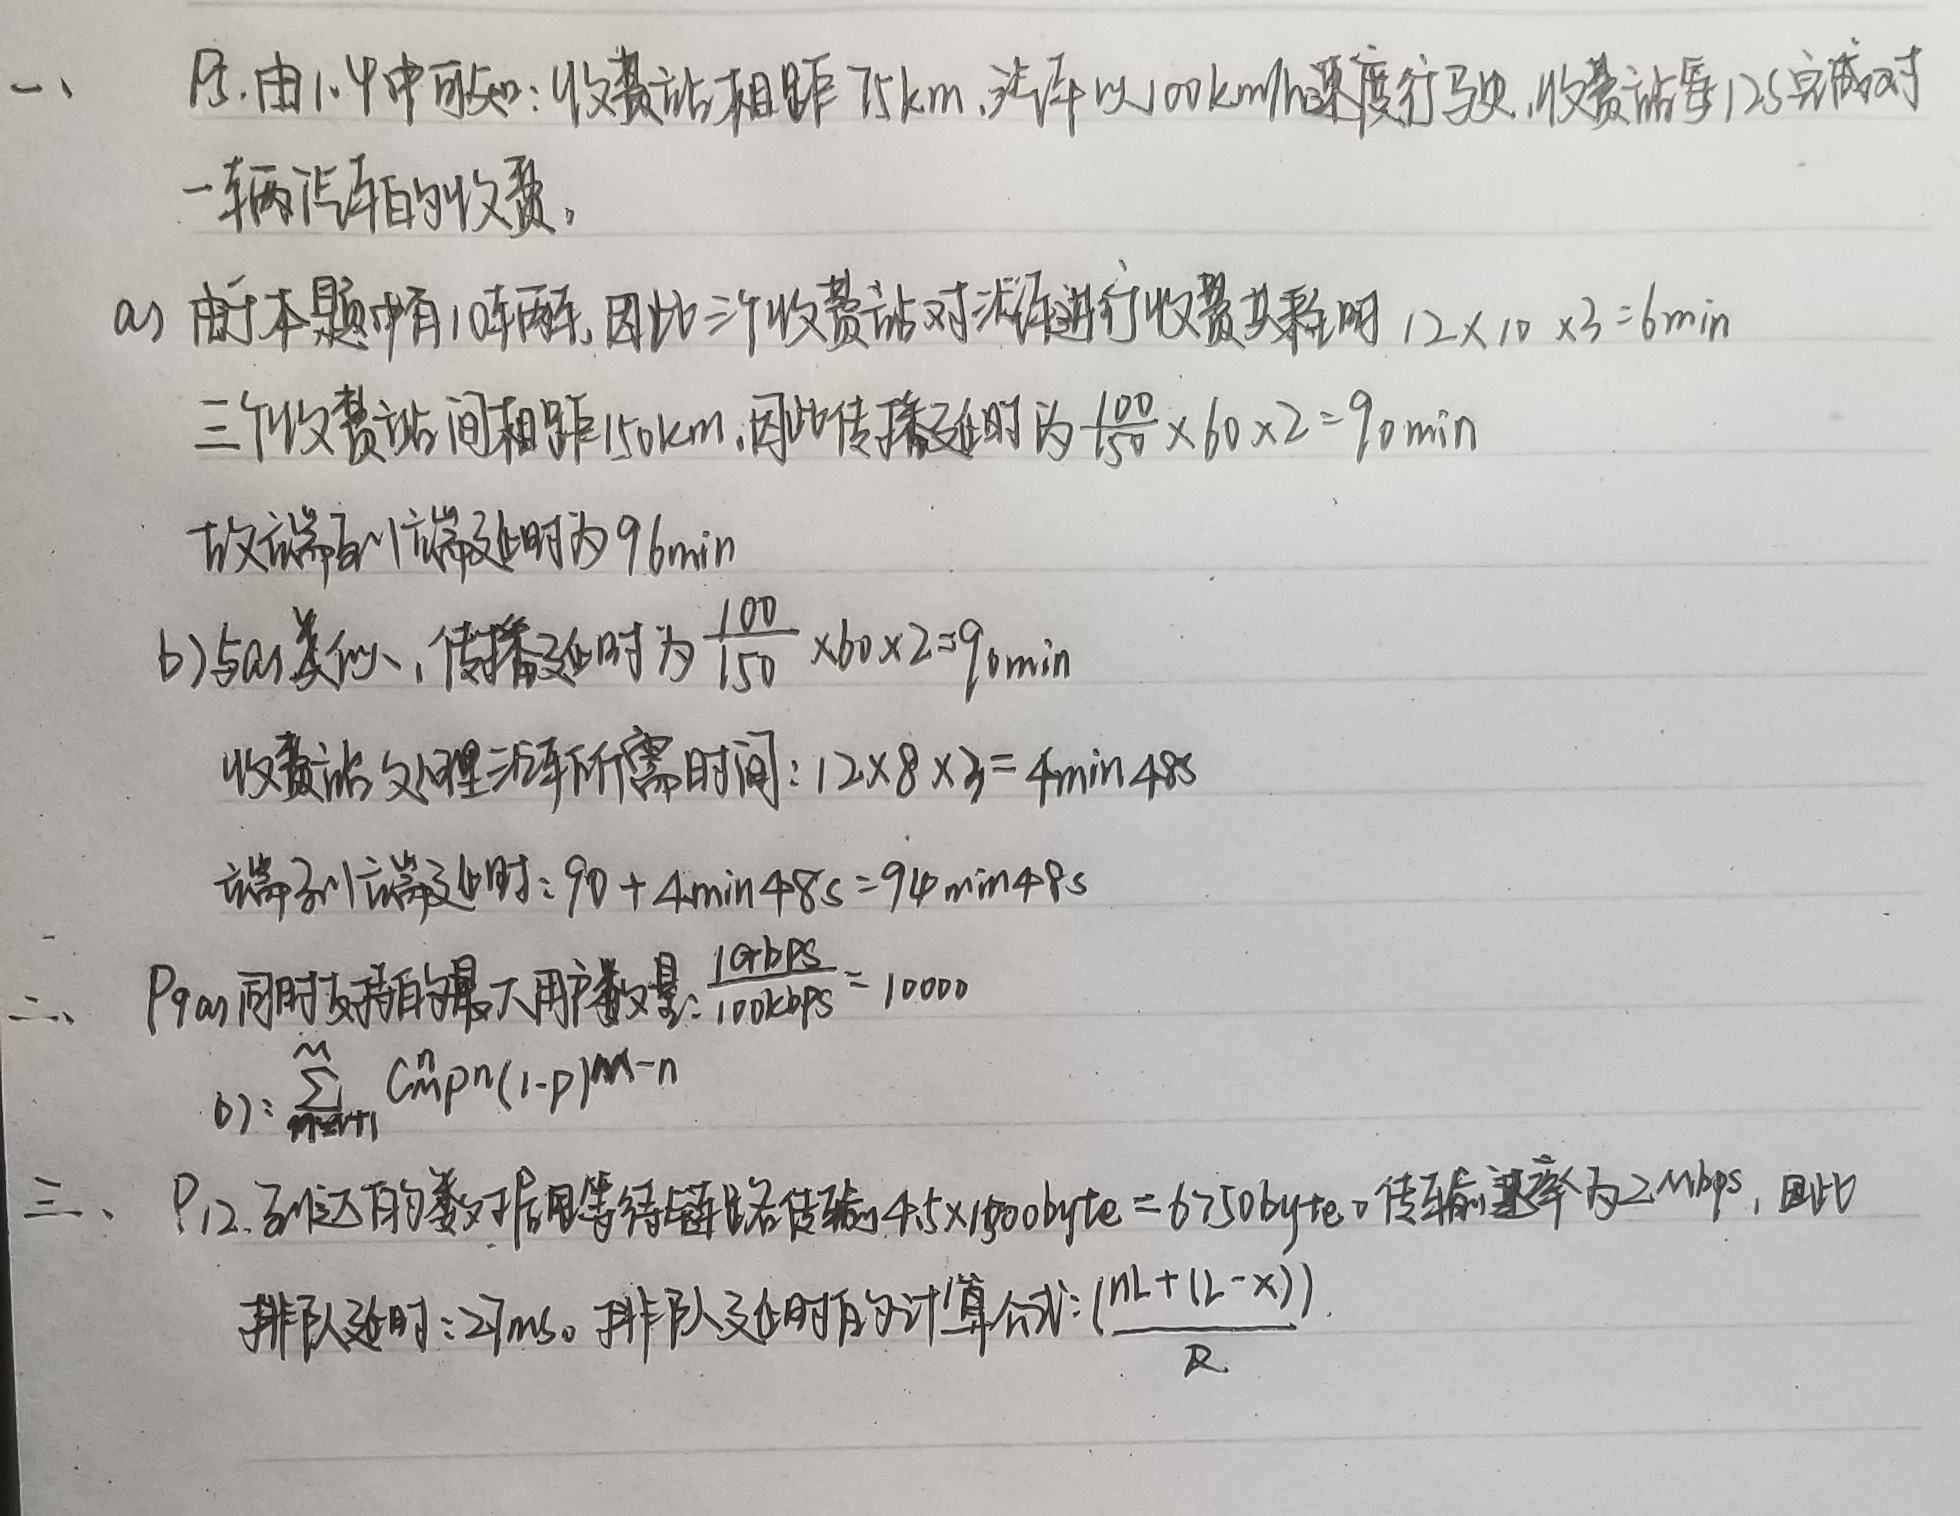 一、 P5.由1.4中可知:收费站相距75km,汽车以100km/h速度行驶,收费站每12s完成对
一辆汽车的收费。
a) 由于本题中有10辆车,因此三个收费站对汽车进行收费共耗时 12×10×3=6min
三个收费站间相距150km,因此传播延时为 100/150 ×60×2=90min
故端到端延时为96min
b)与a)类似,传播延时为 100/150 ×60×2=90min
收费站处理汽车所需时间:12×8×3=4min48s
端到端延时:90+4min48s=94min48s
二、 P9a)同时支持的最大用户数量: 1Gbps/100kbps = 10000
b): ∑ M C_M^n p^n (1-p)^{M-n}
三、 P12.到达的数据等待链路传输4.5×1500byte=6750byte。传输速率为2Mbps,因此
排队延时:27ms。排队延时的计算公式:(nL+(L-x))/R.